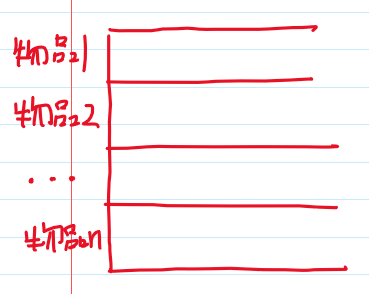 物品1
物品2
...
物品n